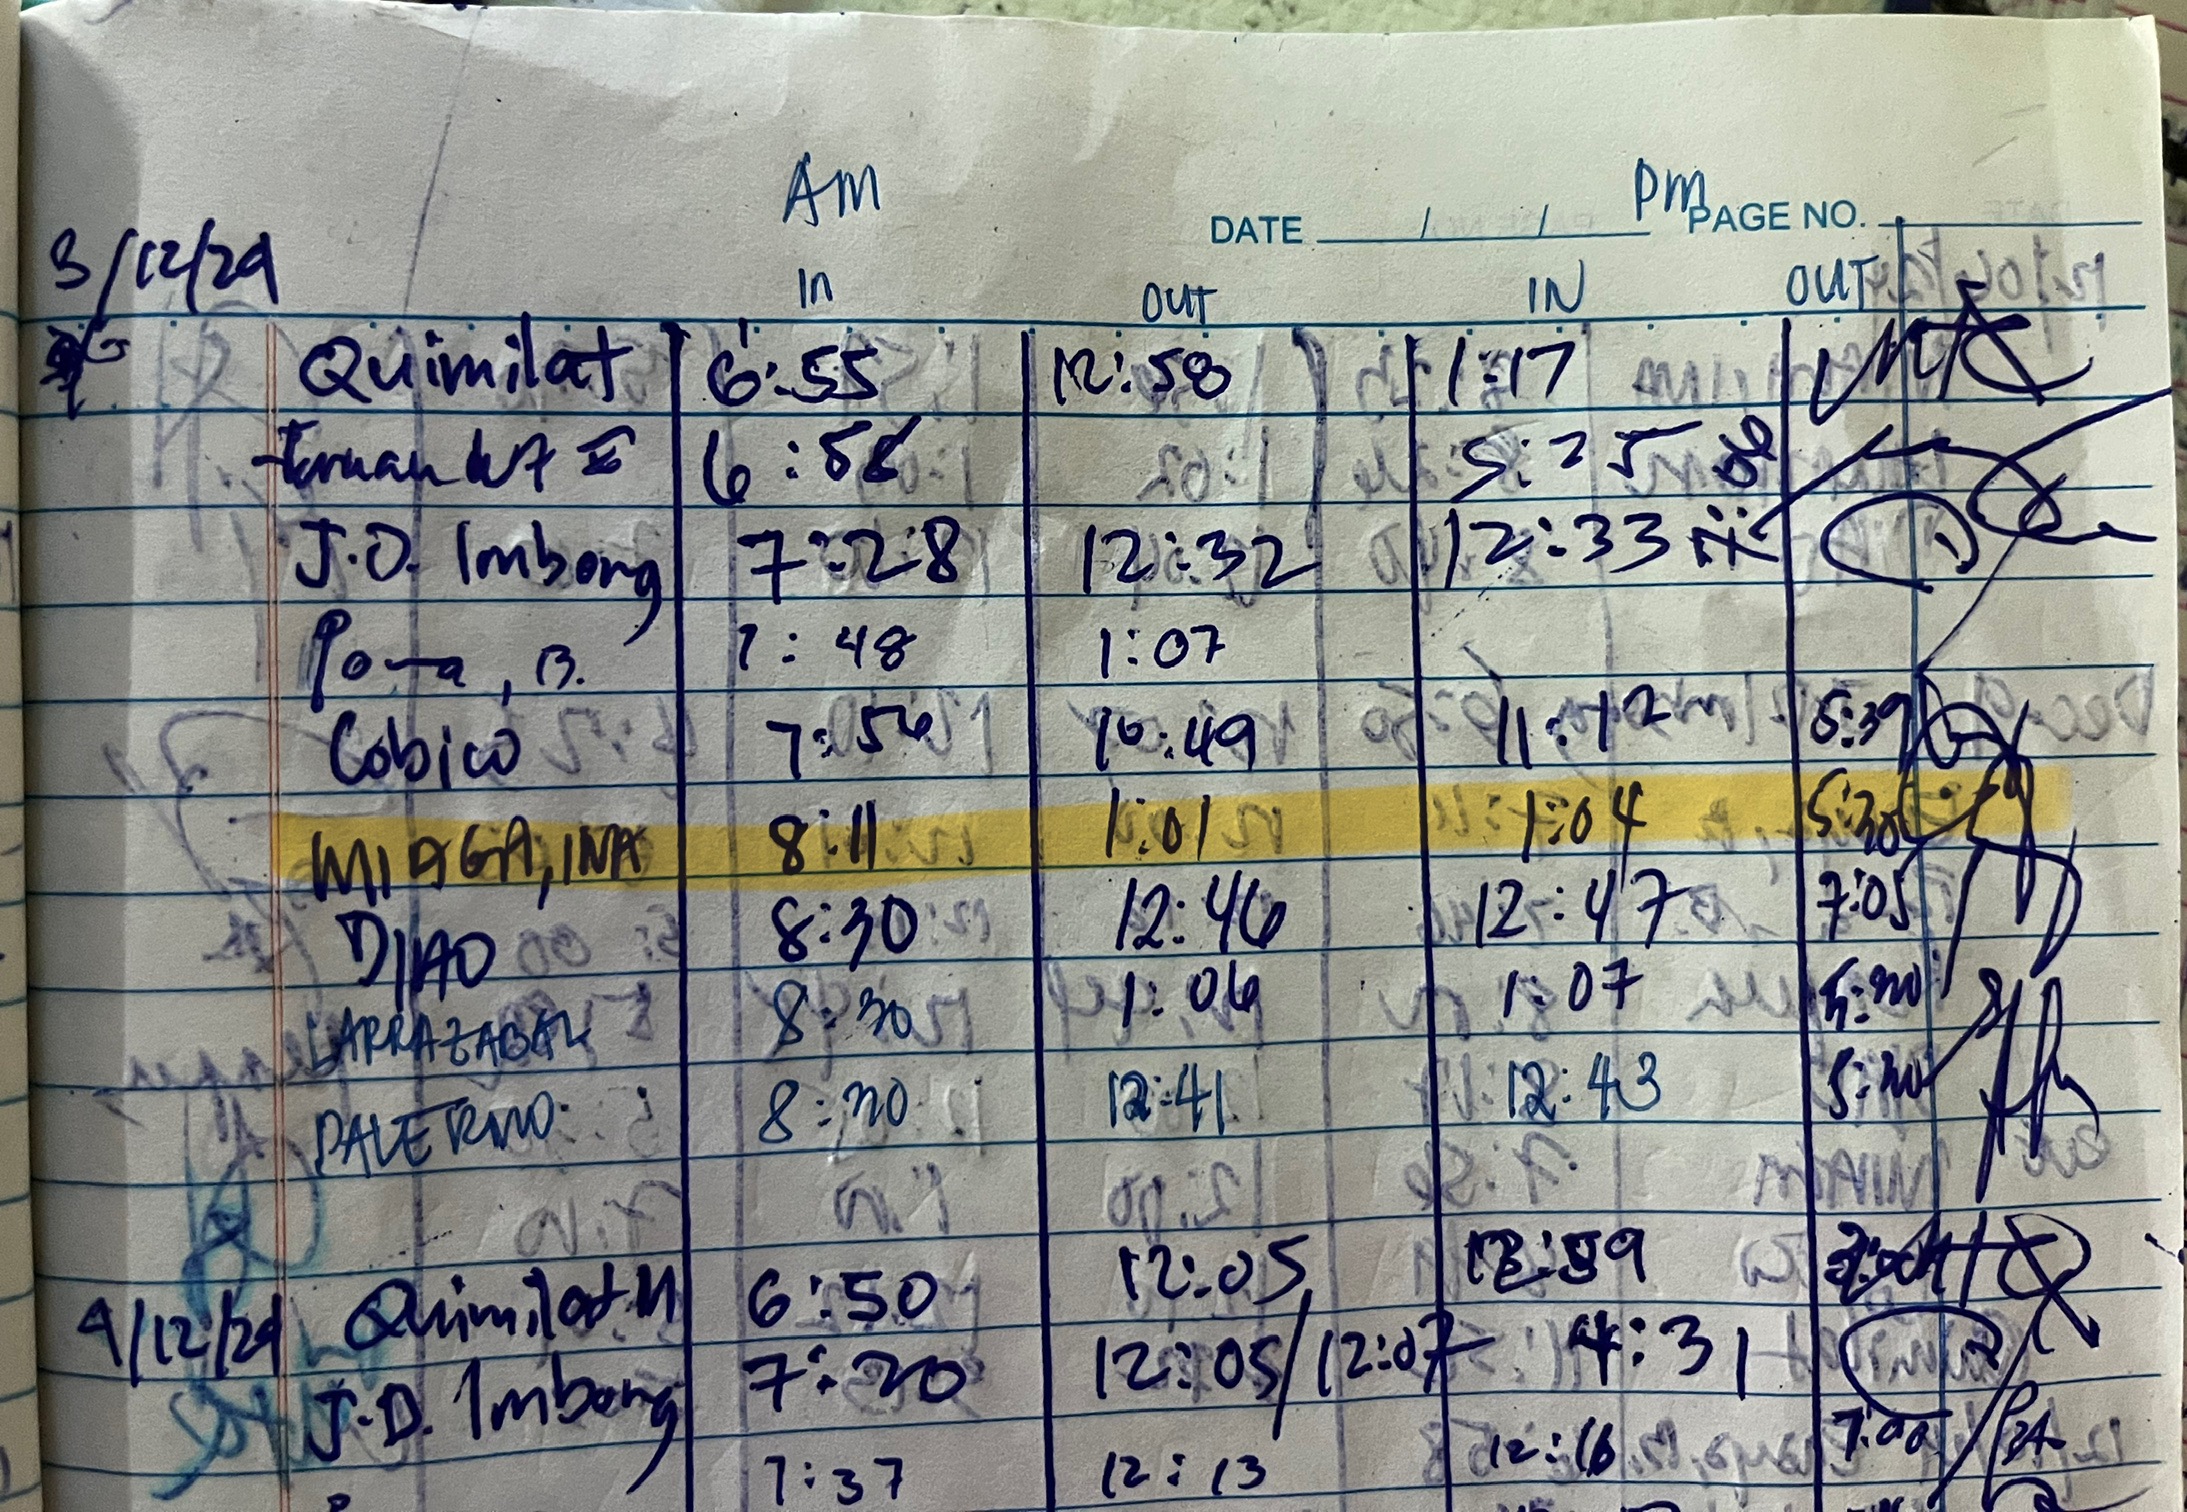 AM PM
DATE / / PAGE NO.
3/12/24 In OUT IN OUT
Quimilat 6:55 12:58 1:17
6:58 5:25
J.D. Imbong 7:28 12:32 12:33
7:48 1:07
Cobico 7:54 10:49 11:12 5:39
MIAGA, INA 8:11 1:01 1:04 5:30
DIIAO 8:30 12:46 12:47 7:05
LARRAZABAL 8:30 1:06 1:07 5:30
PALERMO 8:30 12:41 12:43 5:30
4/12/24 Quimilat M 6:50 12:05 12:59
J.D. Imbong 7:20 12:05/12:07 4:31
7:37 12:13 12:16 7:00